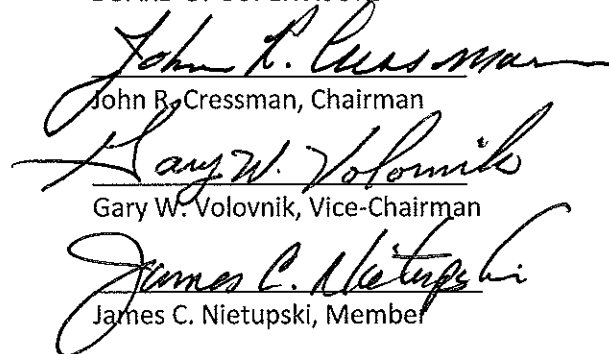 BOARD OF SUPERVISORS
John R. Cressman
John R. Cressman, Chairman
Gary W. Volovnik
Gary W. Volovnik, Vice-Chairman
James C. Nietupski
James C. Nietupski, Member